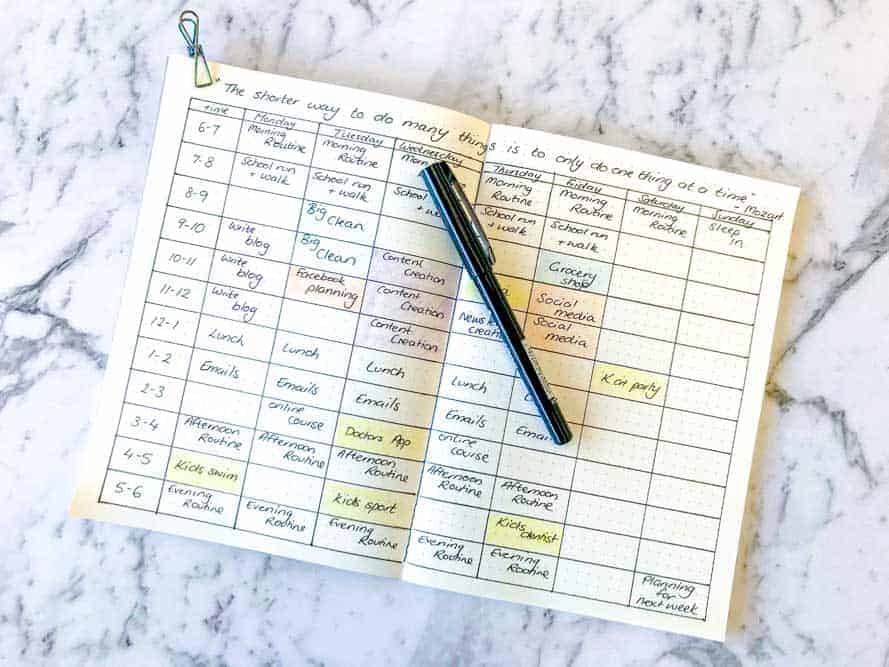 "The shorter way to do many things is to only do one thing at a time"
- Mozart
time Monday Tuesday Wednesday Thursday Friday Saturday Sunday
6-7 Morning Routine Morning Routine Morning Routine Morning Routine Morning Routine Sleep in
7-8 School run + walk School run + walk School School run + walk School run + walk
8-9 Big Clean Grocery shop
9-10 Write blog Big Clean Content Creation Social media
10-11 Write blog Facebook planning Content Creation Social media
11-12 Write blog Content Creation
12-1 Lunch Lunch Lunch Lunch K at party
1-2 Emails Emails Emails Emails
2-3 online course Doctors App online course
3-4 Afternoon Routine Afternoon Routine Afternoon Routine Afternoon Routine Afternoon Routine
4-5 Kids swim Kids sport Kids dentist
5-6 Evening Routine Evening Routine Evening Routine Evening Routine Evening Routine Planning for next week